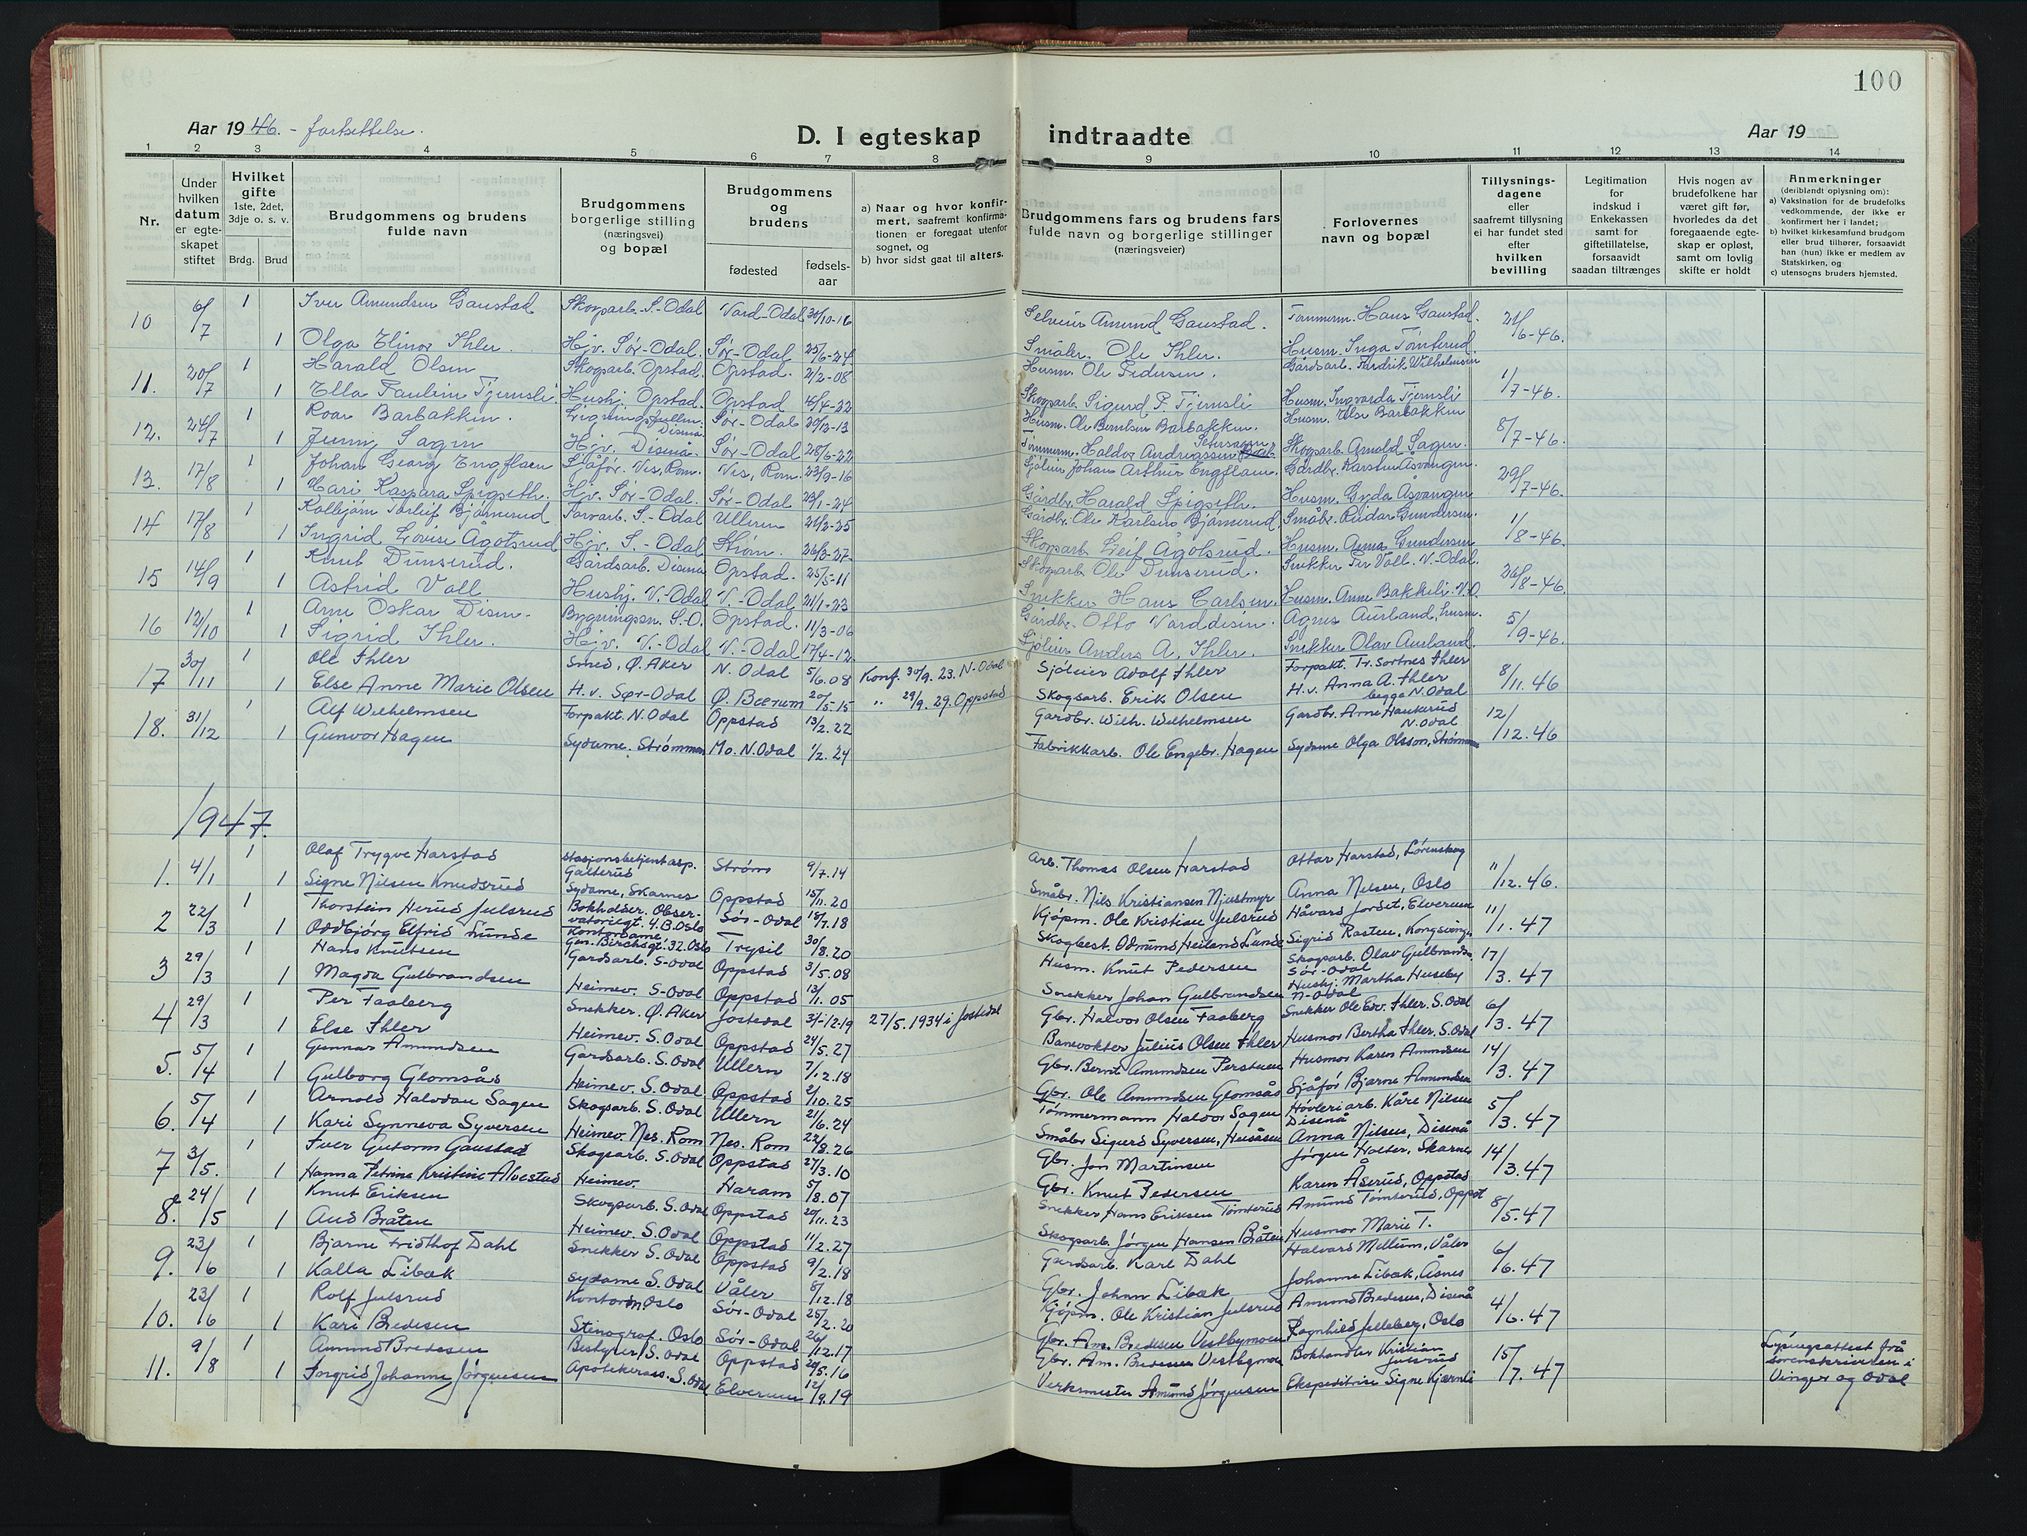 100
Aar 1946. - fortsettelse.
D. I egteskap indtraadte
Aar 19
1 2 3 4 5 6 7 8 9 10 11 12 13 14
Nr.
Under hvilken datum er egteskapet stiftet
Hvilket gifte 1ste, 2det, 3dje o. s. v.
Brdg. Brud
Brudgommens og brudens fulde navn
Brudgommens borgerlige stilling (næringsvei) og bopæl
Brudgommens og brudens
fødested fødselsaar
a) Naar og hvor konfirmert, saafremt konfirmationen er foregaat utenfor sognet, og
b) hvor sidst gaat til alters.
Brudgommens fars og brudens fars fulde navn og borgerlige stillinger (næringsveier)
Forlovernes navn og bopæl
Tillysningsdagene eller saafremt tillysning ei har fundet sted efter hvilken bevilling
Legitimation for indskud i Enkekassen samt for giftetillatelse, forsaavidt saadan tiltrænges
Hvis nogen av brudefolkene har været gift før, hvorledes da det foregaaende egteskap er opløst, samt om lovlig skifte er holdt
Anmerkninger (deriblandt oplysning om):
a) Vaksination for de brudefolks vedkommende, der ikke er konfirmert her i landet;
b) hvilket kirkesamfund brudgom eller brud tilhører, forsaavidt han (hun) ikke er medlem av Statskirken, og
c) utensogns bruders hjemsted.
10 6/7 1 Iver Amundsen Gaustad Skogsarb. S.-Odal Nord-Odal 30/10-16 Selveier Amund Gaustad. Tømmerm. Hans Gaustad. 21/6-46
1 Olga Elinor Ihler. Hjv. Sør-Odal. Sør-Odal 25/6-24 Småbr. Ole Ihler. Husm. Inga Tømterud.
11. 20/7 1 Harald Olsen Skogsarb. Opstad. Opstad. 2/2-08 Husm. Ole Pedersen. Gårdsarb. Fredrik Wilhelmsen 1/7-46.
1 Ella Pauline Tjernsli. Hushj. Opstad. Opstad 4/4-22 Skogsarb. Sigurd P. Tjernsli Husm. Ingvarda Tjernsli
12. 24/7 1 Roar Barbakken. Ligningsfullm. Disenå. Sør-Odal 29/12-13 Husm. Ole Berntsen Barbakken. Husm. Else Barbakken 8/7-46.
1 Jenny Sagen Hjv. Disenå. Sør-Odal 28/6-22 Tømmerm. Haldor Andreassen Skogsarb. Arnold Sagen.
13. 17/8 1 Johan Georg Engflaen Sjåfør. Nes, Rom. Nes, Rom. 23/9-16 Sjøleier Johan Arthur Engflaen Gårdbr. Karsten Åsvangen. 29/7-46.
1 Kari Kaspara Spigseth. Hjv. Sør-Odal. Sør-Odal 23/1-24 Gårdbr. Harald Spigseth. Husm. Gyda Åsvangen
14 17/8 1 Kolbjørn Torleif Bjørnerud S.-Odal Ullern 21/2-25 Gårdbr. Ole Karlsen Bjørnerud. Småbr. Reidar Gundersen. 1/8-46.
1 Ingrid Lovise Ågotsrud Hjv. S.-Odal Strøm. 26/3-27 Skogsarb. Leif Ågotsrud. Husm. Anna Gundersen
15 14/9 1 Knut Dunserud. Gårdsarb. Disenå Opstad. 25/5-11 Skogsarb. Ole Dunserud. Snekker Per Voll. N.-Odal. 26/8-46.
1 Astrid Voll Hushj. N.-Odal N.-Odal 21/1-23 Snekker Hans Carlsen. Husm. Anne Bakkeli. N.O
16 12/10 1 Arne Oskar Disen. Bygningssn. S.-O. Opstad. 11/3-06 Gårdbr. Otto Norddisen. Agnes Aurland, husm. 5/9-46.
1 Sigrid Ihler. Hjv. N.-Odal N.-Odal 17/4-12. Sjøleier Anders A. Ihler. Snekker Olav Aurland.
17 30/11 1 Ole Ihler Smed, Ø. Aker N. Odal 5/6.08 Konf. 30/9.23. N-Odal Sjøleier Adolf Ihler Forpakt. Tr. Sortnes Ihler 8/11.46
1 Else Anne Marie Olsen H.v. Sør-Odal Ø. Bærum 20/5-15 " 29/9.29. Oppstad Skogsarb. Erik Olsen H.v. Anna A. Ihler begge N. Odal
18. 31/12 1 Alf Wilhelmsen Forpakt. N. Odal Oppstad 13/2.22 Gardbr. Wilh. Wilhelmsen Gardbr. Arne Haukerud N. Odal 12/12.46
1 Gunvor Hagen Sydame. Strømmen Mo. N. Odal 1/2.24 Fabrikkarb. Ole Engebr. Hagen Sydame Olga Olsson, Strømmen
1947.
1. 4/1 1 Olaf Trygve Harstad Stasjonsbetjent asp. Galterud Strøm 9/7.14 Arb. Thomas Olsen Harstad Ottar Harstad, Lørenskog 11/12.46.
1 Signe Nilsen Knudsrud Sydame, Skarnes Oppstad 15/11.20 Småbr. Nils Kristiansen Njustmyr Anna Nilsen, Oslo
2 22/3 1 Thorstein Herud Julsrud Bokholder. Observatoriegt. 4.B. Oslo Sør-Odal 18/7.18 Kjøpm. Ole Kristian Julsrud Håvard Jordet, Elverum 11/1.47
1 Oddbjørg Elfrid Lunde Kontordame Gen. Birchsgt. 32. Oslo Trysil 30/8.20 Skogbest. Odmund Heiland Lunde Sigrid Rasten, Kongsving.
3 29/3 1 Hans Knutsen Gardsarb. S-Odal Oppstad 3/5.08 Husm. Knut Pedersen Skogsarb. Olav Gulbrands. Sør-Odal 17/3.47
1 Magda Gulbrandsen Heimev. S-Odal Oppstad 13/1.05 Snekker Johan Gulbrandsen Hushj. Martha Huseby N-Odal
4 29/3 1 Per Faaberg Snekker. Ø. Aker Jostedal 31-12-19 27/5.1934 i Jostedal Gbr. Halvor Olsen Faaberg Snekker Ole Edv. Ihler. S. Odal 6/3.47
1 Else Ihler Heimev. S. Odal Oppstad 24/5.27 Banevokter Julius Olsen Ihler Husmor Bertha Ihler. S. Odal
5. 5/4 1 Gunnar Amundsen Gardsarb. S. Odal Ullern 7/12.18 Gbr. Bernt Amundsen Perstuen Husmor Karen Amundsen 14/3.47
1 Gulborg Glomsås Heimev. S. Odal Oppstad 2/10.25 Gbr. Ole Amundsen Glomsås Sjåfør Bjarne Amundsen
6. 5/4 1 Arnold Halvdan Sagen Skogsarb. S. Odal Ullern 2/6.24 Tømmermann Haldor Sagen Høvleriarb. Kåre Nilsen Disenå 5/3.47
1 Kari Synneva Syversen Heimev. Nes. Rom Nes. Rom 22/8.26 Småbr. Sigurd Syversen, Husåsen Anna Nilsen, Disenå
7 3/5. 1 Iver Gutorm Gaustad Skogsarb. S. Odal Oppstad 27/3.10 Gbr. Jon Martinsen Jørgen Holter, Skarnes 14/3.47
1 Hanna Petrine Kristine Alvestad Heimev. Haram 5/8.07 Gbr. Knut Pedersen Karen Åserud, Oppstad
8. 24/5 1 Knut Eriksen Skogsarb. S. Odal Oppstad 20/11.23 Snekker Hans Eriksen Tømterud Amund Tømterud, Oppst 8/5.47
1 Aud Bråten Heimev. S. Odal Oppstad 11/2.27 Skogsarb. Jørgen Hansen Bråten Husmor Marie T.
9. 23/6 1 Bjarne Fridthof Dahl Snekker S. Odal Oppstad 9/2.18 Gardsarb. Karl Dahl Halvard Mellum, Våler 6/6.47
1 Kalla Libæk Sydame S. Odal Våler 8/12.18 Gbr. Johan Libæk Johanne Libæk, Åsnes
10. 23/6 1 Rolf Julsrud Oslo Sør-Odal 25/2.20 Kjøpm. Ole Kristian Julsrud Amund Bredesen, Disenå 4/6.47
1 Kari Bredesen Stenograf. Oslo Sør-Odal 26/12.17 Gbr. Am. Bredesen Vestbymoen Ragnhild Jelleberg, Oslo
11. 9/8 1 Amund Bredesen Bestyrer S. Odal Oppstad 20/5.16 Gbr. Am. Bredesen Vestbymoen Bokhandler Kristian Julsrud 15/7.47 Lysingsattest frå sorenskriveren i Vinger og Odal
1 Ingrid Johanne Jørgensen Apotekerass. S. Odal Elverum 12/9.19 Verksmester Amund Jørgensen Ekspeditrise Signe Kjærnli